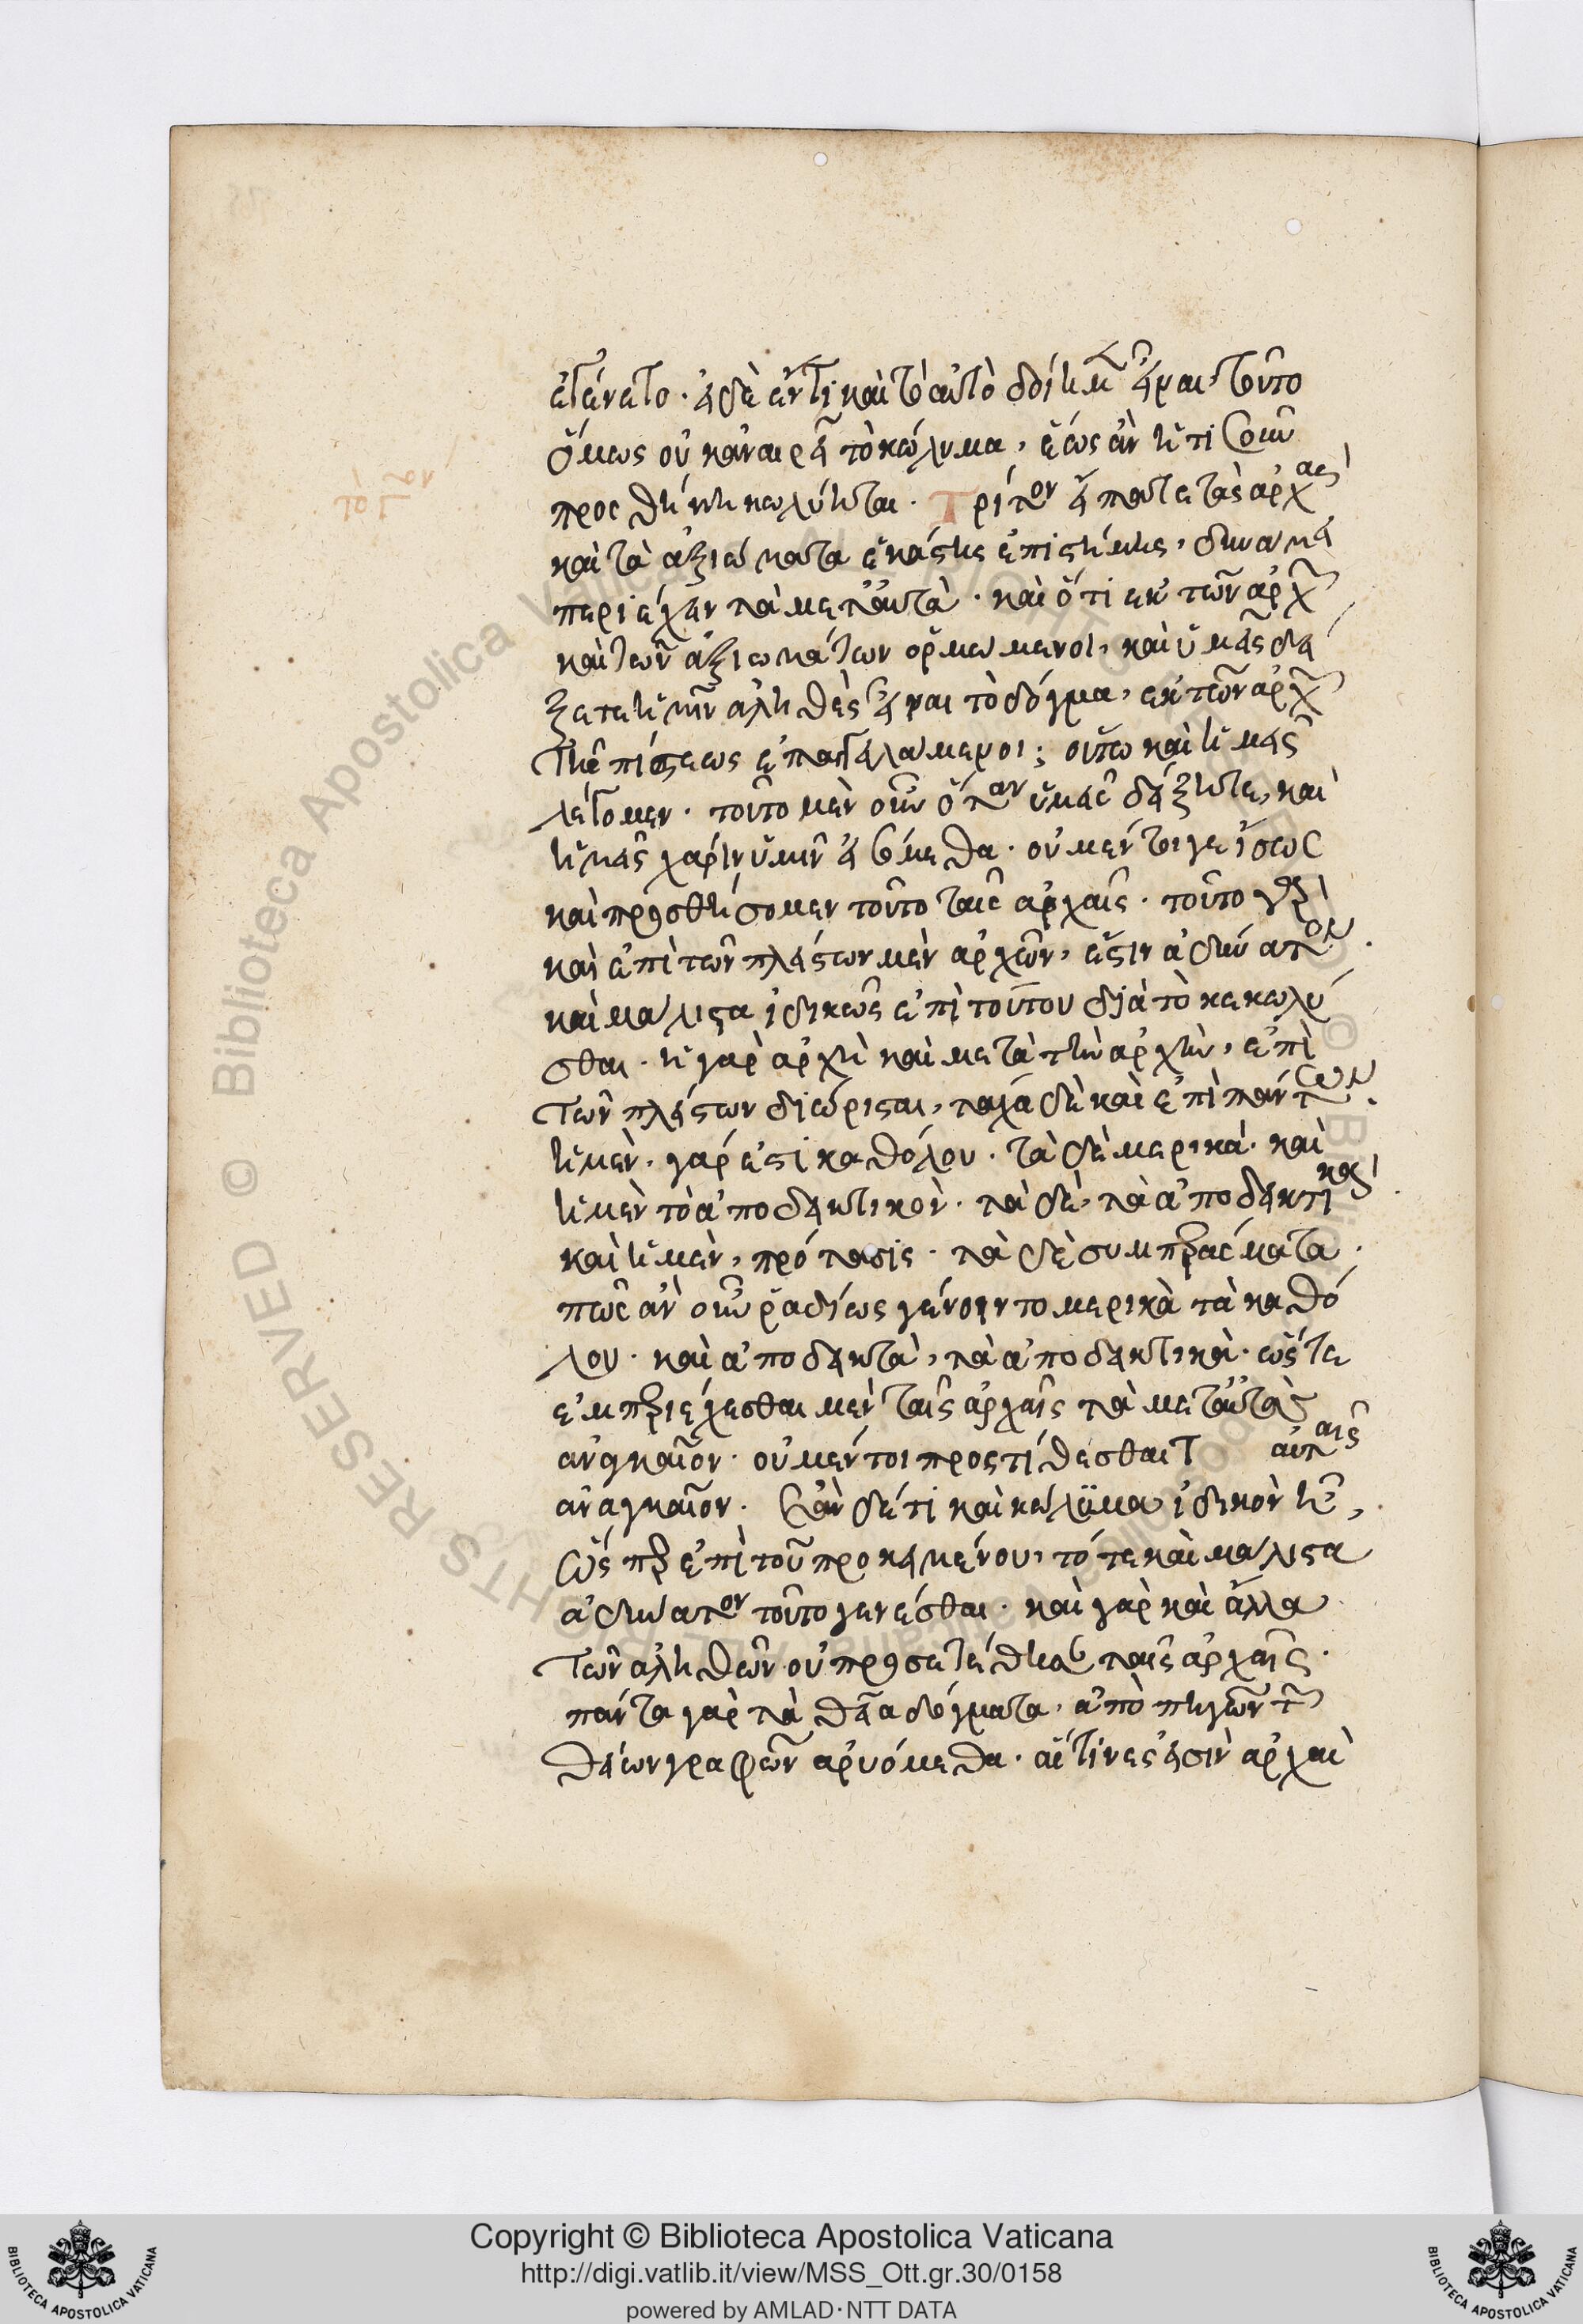 ἐγένετο · εἰ δὲ ἕν τι καὶ τὸ αὐτὸ εἶναι, τοῦτο
ὅμως οὐκ ἀναιρεῖ τὸ κώλυμα, ἕως ἂν ἥτισουν
προσθήκη κεκωλύηται · Τρίτον εἴπατε τὰς ἀρχὰς
καὶ τὰ ἀξιώματα ἑκάστης ἐπιστήμης, δυνάμει
περιέχειν τὰ μετ' αὐτὰ · καὶ ὅτι ἐκ τῶν ἀρχῶν
καὶ τῶν ἀξιωμάτων ὁρμώμενοι, καὶ ὑμᾶς δεί
ξετε ἡμῖν ἀληθὲς εἶναι τὸ δόγμα, ἐκ τῶν ἀρχῶν
τῆς πίστεως ἐπαγγειλάμενοι; οὕτω καὶ ἡμᾶς
λέγομεν · τοῦτο μὲν οὖν ὅταν ὑμᾶς δείξητε, καὶ
ἡμᾶς χάριν ὑμῖν εἰσόμεθα · οὐ μέντοιγε ἴσως
καὶ προσθήσομεν τοῦτο ταῖς ἀρχαῖς · τοῦτο γὰρ
καὶ ἐπὶ τῶν πλείστων μὲν ἀρχῶν, ἔστιν ἀδύνατον ·
καὶ μάλιστα ἰδικῶς ἐπὶ τούτου διὰ τὸ κεκωλύ
σθαι · ἡ γὰρ ἀρχὴ καὶ μετὰ τὴν ἀρχὴν, ἐπὶ
τῶν πλείστων διώρισται, τάχα δὲ καὶ ἐπὶ πάντων ·
ἡ μὲν γάρ ἐστι καθόλου · τὰ δὲ μερικά · καὶ
ἡ μὲν τὸ ἀποδεικτικὸν · τὰ δὲ, τὰ ἀποδεικτικὰ ·
καὶ ἡ μὲν, πρότασις · τὰ δὲ συμπεράσματα ·
πῶς ἂν οὖν ῥαδίως γένοιντο μερικὰ τὰ καθό
λου · καὶ ἀποδεικτὰ, τὰ ἀποδεικτικὰ · ὥστε
ἐμπεριέχεσθαι μὲν ταῖς ἀρχαῖς τὰ μετ' αὐτὰς
ἀναγκαῖον · οὐ μέντοι προστίθεσθαι αὐταῖς
ἀναγκαῖον · ἐὰν δέ τι καὶ κώλυμα ἰδικὸν ᾖ,
ὥσπερ ἐπὶ τοῦ προκειμένου, τότε καὶ μάλιστα
ἀδύνατον τοῦτο γενέσθαι · καὶ γὰρ καὶ ἄλλα
τῶν ἀληθῶν οὐ προσετέθησαν ταῖς ἀρχαῖς ·
πάντα γὰρ τὰ θεῖα δόγματα, ἀπὸ πηγῶν τῶν
θείων γραφῶν ἀρυόμεθα · αἵτινες εἰσὶν ἀρχαὶ
© Biblioteca Apostolica Vaticana
Copyright © Biblioteca Apostolica Vaticana
http://digi.vatlib.it/view/MSS_Ott.gr.30/0158
powered by AMLAD·NTT DATA
BIBLIOTECA APOSTOLICA VATICANA
BIBLIOTECA APOSTOLICA VATICANA